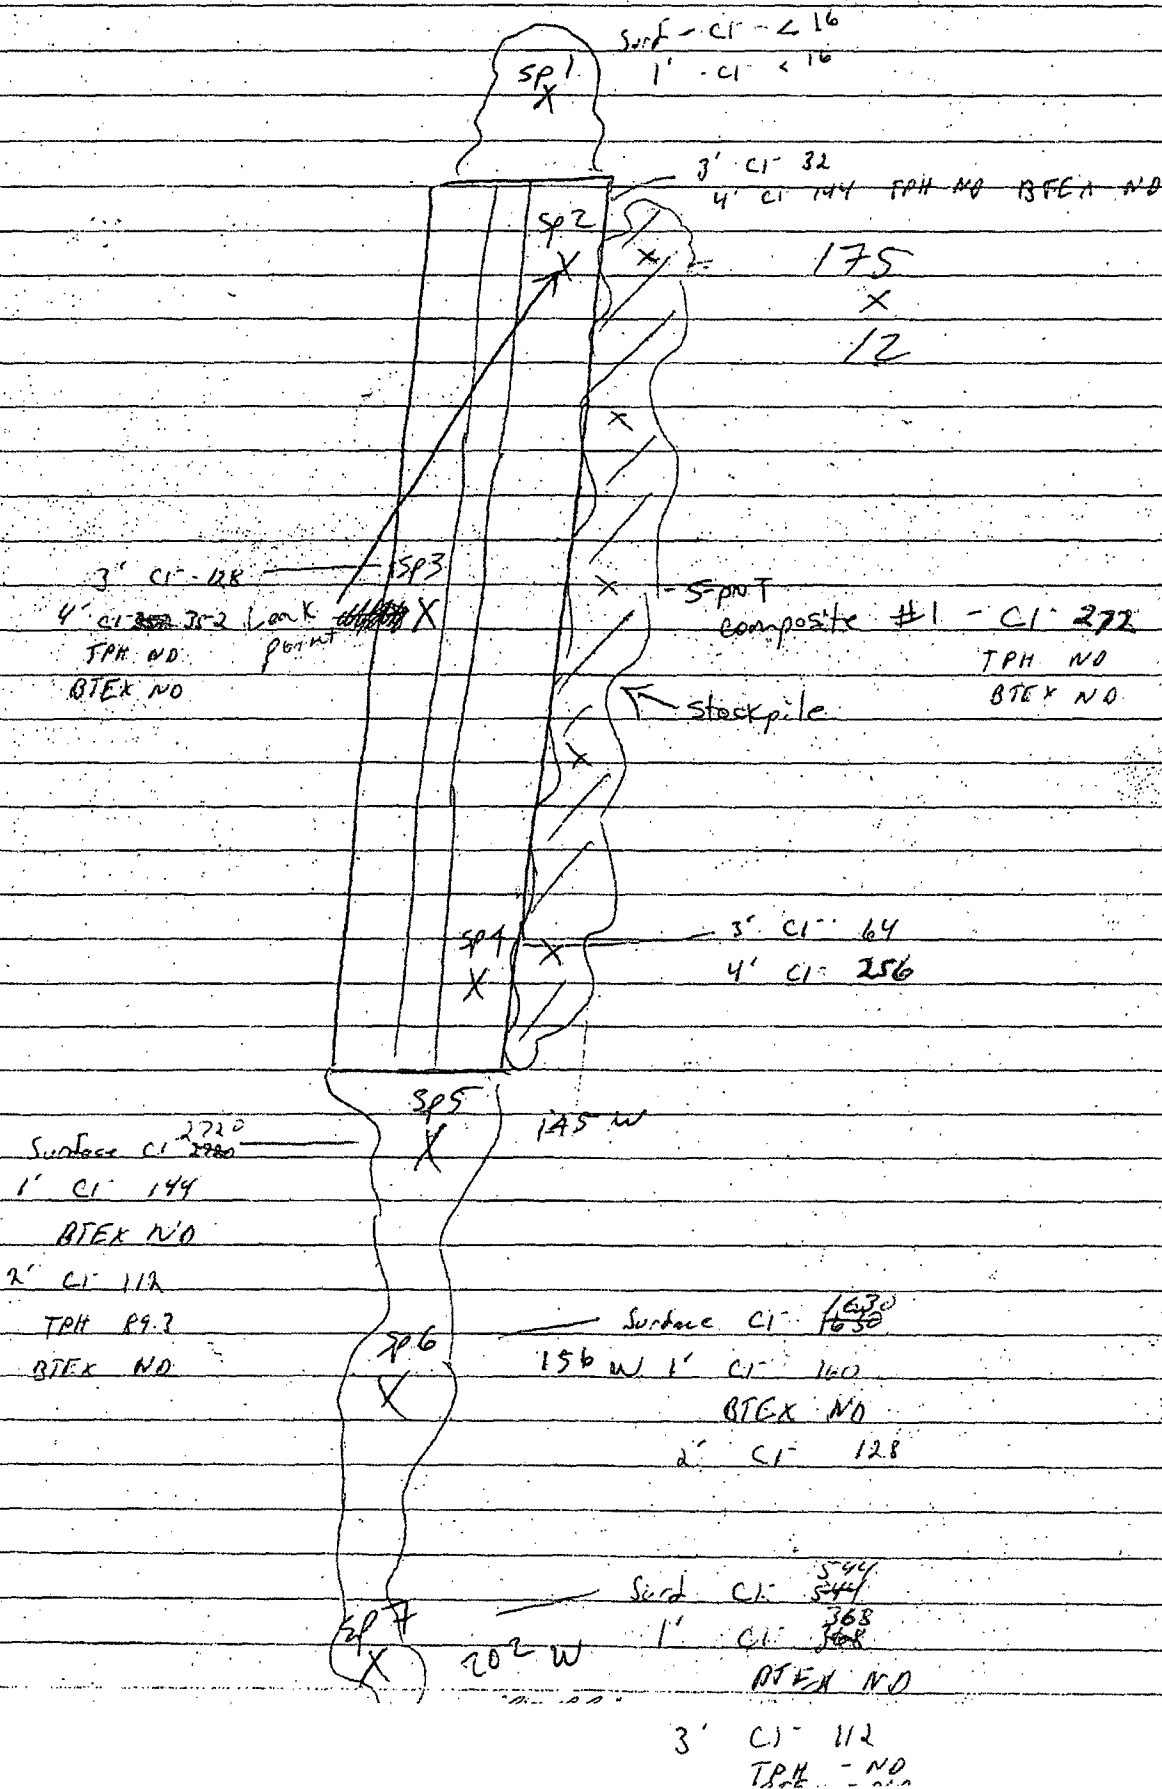 Surf - Cl- < 16
1' - Cl- < 16
sp1
X
3' Cl- 32
4' Cl- 144 TPH ND BTEX ND
sp2
X
175
X
12
3' Cl- 128
sp3
X
4' Cl- 352 Leak
point
TPH ND
BTEX ND
5-pnt
composite #1 - Cl- 272
TPH ND
BTEX ND
Stockpile
sp4
X
3' Cl- 64
4' Cl- 256
sp5
X
145 W
Surface Cl- 2720
1' Cl- 144
BTEX ND
2' Cl- 112
TPH 89.3
BTEX ND
sp6
X
156 W
Surface Cl- 1630
1' Cl- 160
BTEX ND
2' Cl- 128
sp7
X
202 W
Surf Cl- 544
544
1' Cl- 368
368
BTEX ND
3' Cl- 112
TPH - ND